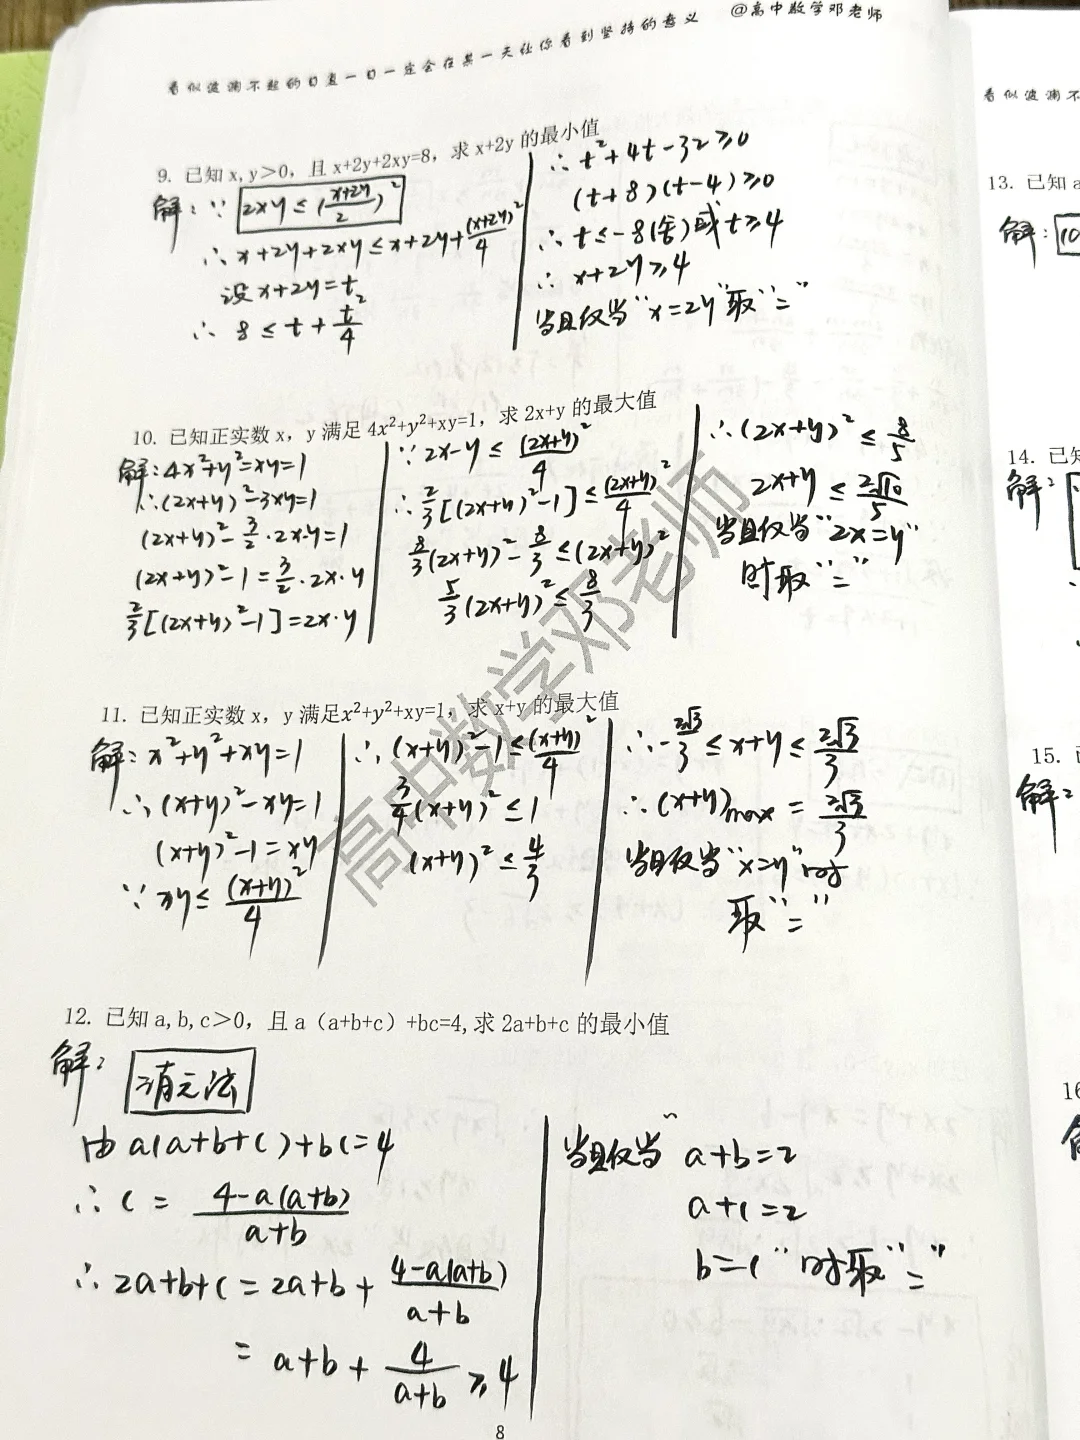 看似波澜不起的日复一日一定会在某一天让你看到坚持的意义 @高中数学邓老师
9. 已知 x,y＞0，且 x+2y+2xy=8，求 x+2y 的最小值
解：∵ 2xy ≤ (\frac{x+2y}{2})^2
∴ x+2y+2xy ≤ x+2y+\frac{(x+2y)^2}{4}
设 x+2y=t
∴ 8 ≤ t+\frac{t^2}{4}
∴ t^2+4t-32≥0
(t+8)(t-4)≥0
∴ t≤-8(舍)或t≥4
∴ x+2y≥4
当且仅当"x=2y"取"="
10. 已知正实数 x，y 满足 4x²+y²+xy=1，求 2x+y 的最大值
解：4x^2+y^2=xy=1
∴(2x+y)^2-3xy=1
(2x+y)^2-\frac{3}{2}·2x·y=1
(2x+y)^2-1=\frac{3}{2}·2x·y
\frac{2}{3}[(2x+y)^2-1]=2x·y
∵ 2x·y ≤ \frac{(2x+y)^2}{4}
∴ \frac{2}{3}[(2x+y)^2-1] ≤ \frac{(2x+y)^2}{4}
\frac{8}{3}(2x+y)^2-\frac{8}{3} ≤ (2x+y)^2
\frac{5}{3}(2x+y)^2 ≤ \frac{8}{3}
∴(2x+y)^2 ≤ \frac{8}{5}
2x+y ≤ \frac{2√10}{5}
当且仅当"2x=y"
时取"="
11. 已知正实数 x，y 满足x²+y²+xy=1，求 x+y 的最大值
解：x^2+y^2+xy=1
∴(x+y)^2-xy=1
(x+y)^2-1=xy
∵ xy≤\frac{(x+y)^2}{4}
∴ (x+y)^2-1≤\frac{(x+y)^2}{4}
\frac{3}{4}(x+y)^2 ≤ 1
(x+y)^2 ≤ \frac{4}{3}
∴-\frac{2√3}{3} ≤ x+y ≤ \frac{2√3}{3}
∴(x+y)max = \frac{2√3}{3}
当且仅当"x=y"时
取"="
12. 已知 a,b,c＞0，且 a（a+b+c）+bc=4,求 2a+b+c 的最小值
解：
消元法
由 a(a+b+c)+bc=4
∴ c = \frac{4-a(a+b)}{a+b}
∴ 2a+b+c = 2a+b+\frac{4-a(a+b)}{a+b}
= a+b+\frac{4}{a+b} ≥4
当且仅当" a+b=2
a+c=2
b=c" 时取"="
8
高中数学邓老师
看似波澜不
13. 已知 a
解：10
14. 已知
解：
15. 已
解：
16